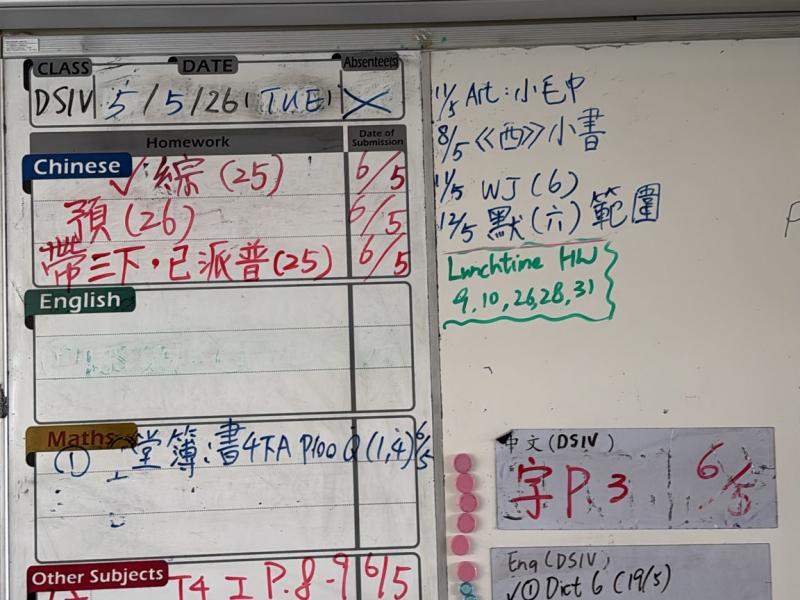 CLASS DATE Absentees
DSIV 5/5/26 (TUE) X
Homework Date of Submission
Chinese
✓綜(25) 6/5
預(26) 6/5
帶三下，已派普(25) 6/5
English
Maths
① 堂簿：書4下A P100 Q(1,4) 6/5
Other Subjects
T4 工 P.8-9 6/5
11/5 Art：小毛巾
8/5 《西》小書
11/5 WJ (6)
12/5 默(六)範圍
Lunchtime HW
9, 10, 26, 28, 31
中文(DSIV)
字 P 3 6/5
Eng (DSIV)
✓① Dict 6 (19/5)